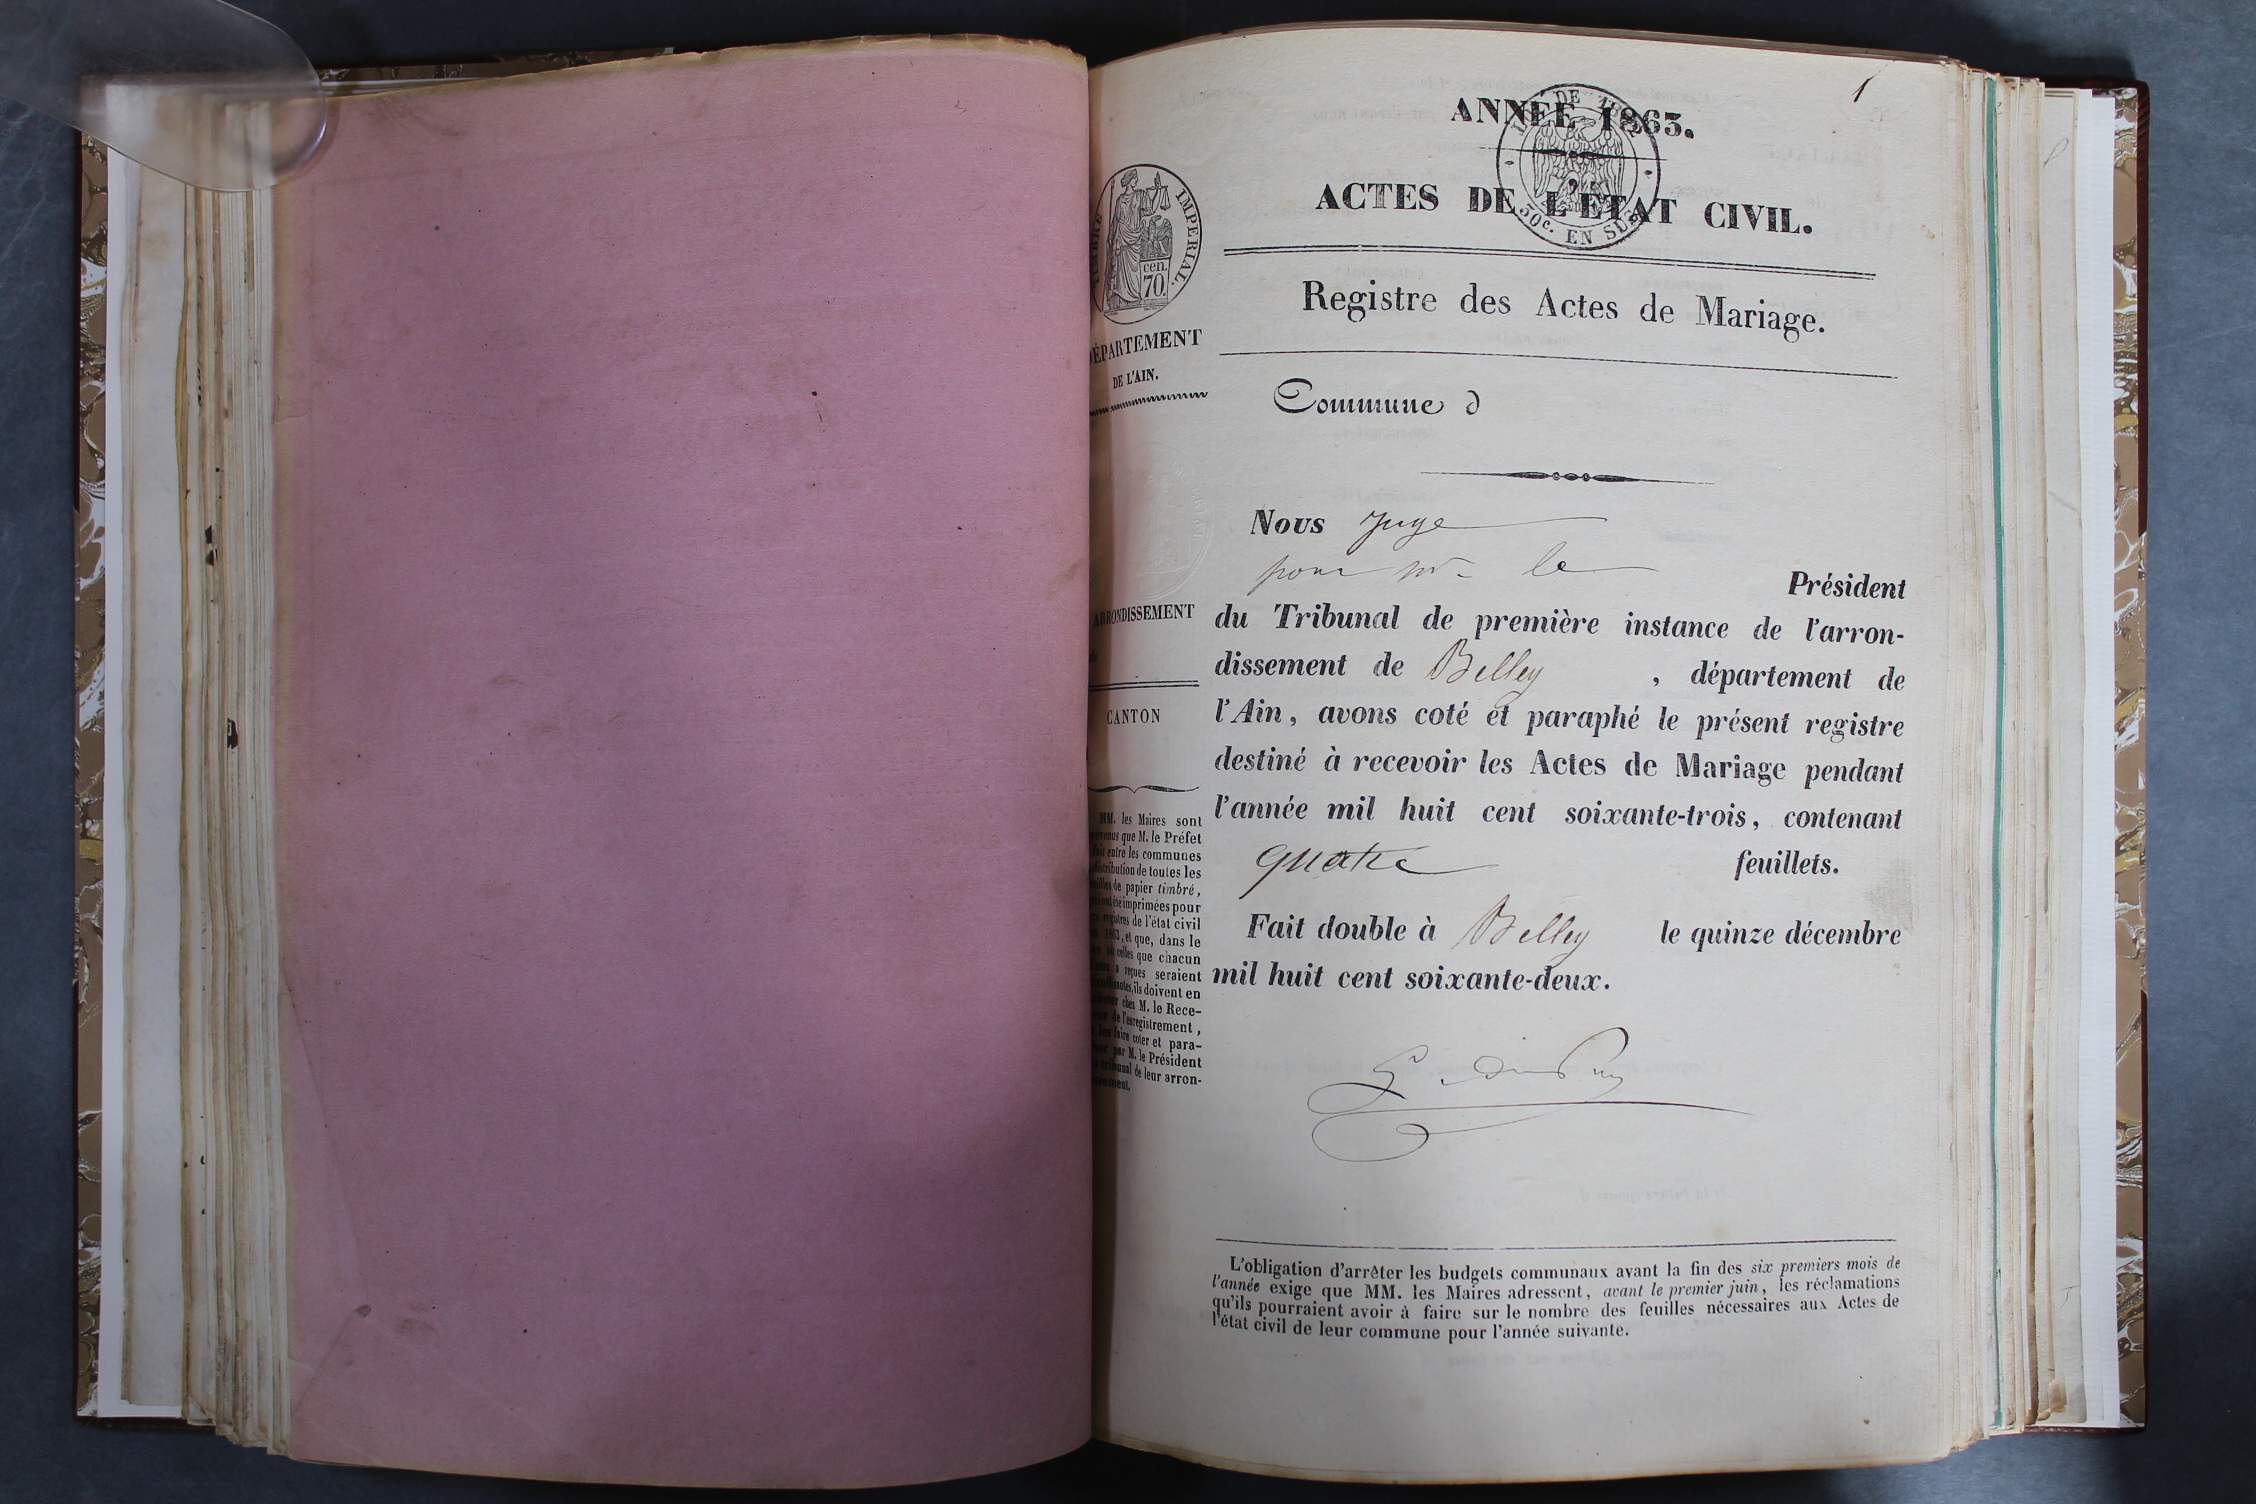 1
ANNÉE 1863.
DE 18
30c. EN SUS
ACTES DE L'ÉTAT CIVIL.
TIMBRE IMPÉRIAL.
cen.
70.
Registre des Actes de Mariage.
DÉPARTEMENT
DE L'AIN.
Commune d
Nous Juge
pour Mr le
Président
du Tribunal de première instance de l'arron-
dissement de Belley , département de
l'Ain, avons coté et paraphé le présent registre
destiné à recevoir les Actes de Mariage pendant
l'année mil huit cent soixante-trois, contenant
quatre feuillets.
Fait double à Belley le quinze décembre
mil huit cent soixante-deux.
ARRONDISSEMENT
CANTON
MM. les Maires sont
que M. le Préfet
entre les communes
distribution de toutes les
de papier timbré,
été imprimées pour
registres de l'état civil
et que, dans le
celles que chacun
reçues seraient
ils doivent en
chez M. le Rece-
de l'enregistrement,
faire coter et para-
par M. le Président
tribunal de leur arron-
L'obligation d'arrêter les budgets communaux avant la fin des six premiers mois de
l'année exige que MM. les Maires adressent, avant le premier juin, les réclamations
qu'ils pourraient avoir à faire sur le nombre des feuilles nécessaires aux Actes de
l'état civil de leur commune pour l'année suivante.